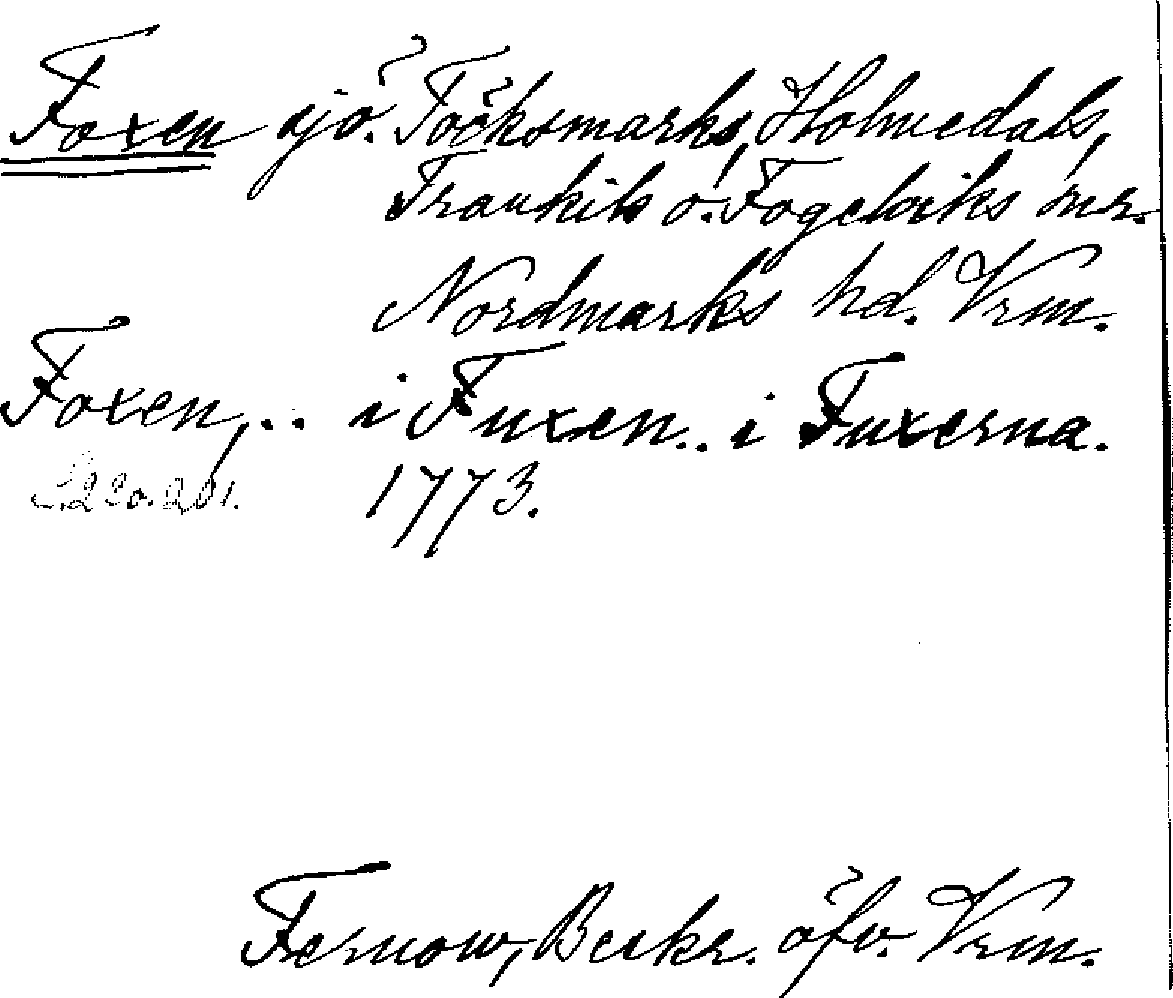 Foxen sjö. Töcksmarks, Holmedals,
Trankils o. Fogelviks snr.
Nordmarks hd. Vrm.
Foxen, .. i Fuxen .. i Fuxerna.
S. 220. 201. 1773.
Fernow, Beskr. öfv. Vrm.